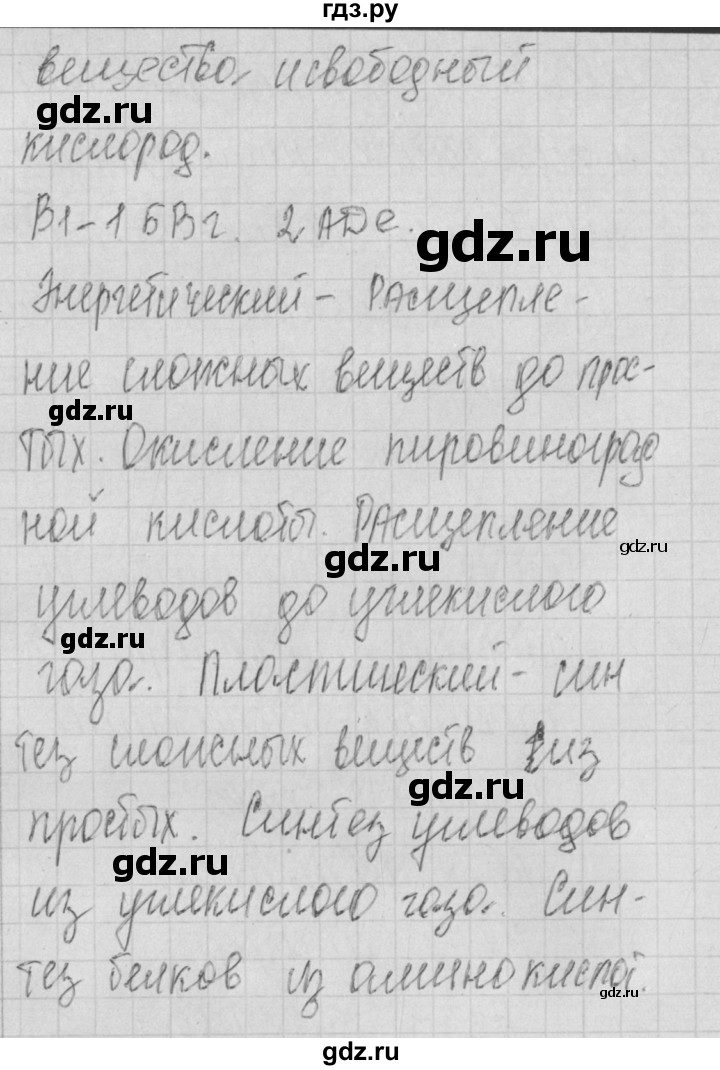 гдз.ру
вещества, и свободный
gdz.ru
кислород.
В1-1 БВг. 2 АДе.
gdz.ru
Энергетический - Расщепле-
ние сложных веществ до прос-
gdz.ru
тых. Окисление пировиноград
ной кислоты. Расщепление
gdz.ru
gdz.ru
углеводов до углекислого
gdz.ru
газа. Пластический - син
тез сложных веществ из
gdz.ru
простых. Синтез углеводов
gdz.ru
из углекислого газа. Син-
тез белков из аминокислот.
gdz.ru
gdz.ru